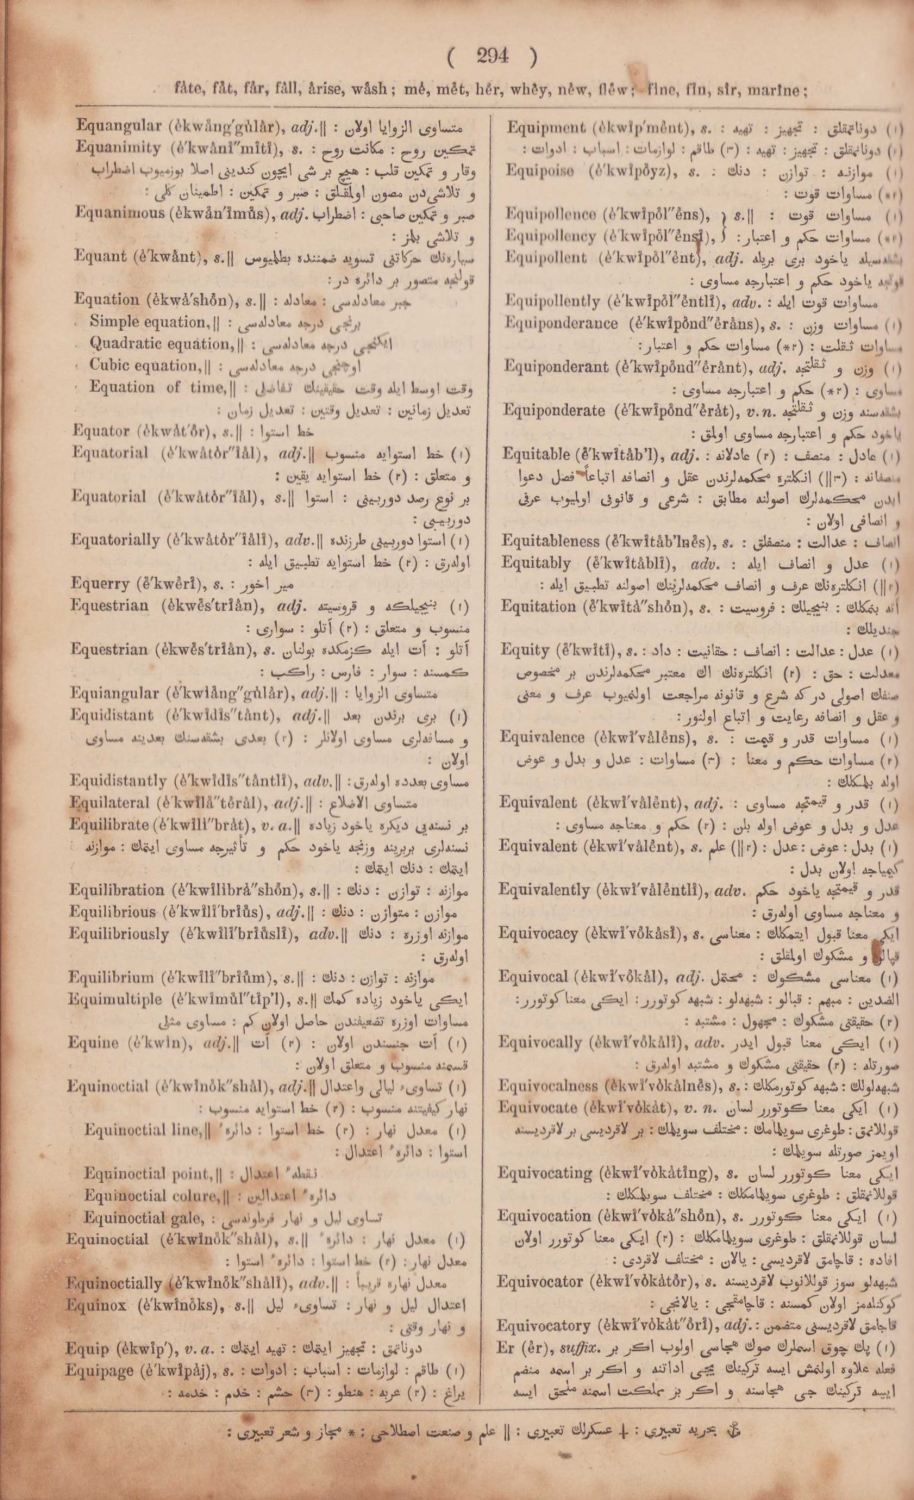 ( 294 )
fåte, fåt, får, fåll, årise, wåsh; mé, mêt, hér, whêy, nêw, flêw; fîne, fîn, sîr, marîne;
Equangular (êkwång′gůlår), adj.|| متساوی الزوایا اولان :
Equanimity (ê′kwånî″mîtî), s. تمكین روح : مكانت روح :
Equanimous (êkwån′îmůs), adj. صبر و تمكین صاحبی : اضطراب
و تلاشی بلمز :
Equant (ê′kwånt), s.||
Equation (êkwå′shôn), s.|| جبر معادلەسی : معادله :
Simple equation,|| برنجی درجه معادلەسی :
Quadratic equation,|| ایكنجی درجه معادلەسی :
Cubic equation,|| اوچنجی درجه معادلەسی :
Equation of time,|| وقت اوسط ایله وقت حقیقینك تفاضلی :
تعدیل زمانین : تعدیل وقتین : تعدیل زمان :
Equator (êkwåt′ôr), s.|| خط استوا :
Equatorial (ê′kwåtôr″îål), adj.|| (۱) خط استوایه منسوب
و متعلق : (۲) خط استوایه یقین :
Equatorial (ê′kwåtôr″îål), s.|| بر نوع رصد دوربینی : استوا
دوربینی :
Equatorially (ê′kwåtôr″îålî), adv.|| (۱) استوا دوربینی طرزنده
اولەرق : (۲) خط استوایه تطبیق ایله :
Equerry (ê′kwêrî), s. میر اخور :
Equestrian (êkwês′trîån), adj. (۱)
منسوب و متعلق : (۲) آتلو : سواری :
Equestrian (êkwês′trîån), s. آتلو : آت ایله كزمكده بولنان
كمسنه : سوار : فارس : راكب :
Equiangular (ê′kwîång″gůlår), adj.|| متساوی الزوایا :
Equidistant (ê′kwîdîs″tånt), adj.|| (۱) بری برندن بعد
و مسافەلری مساوی اولانلر : (۲) بعدی بشقەسنك بعدینه مساوی
اولان :
Equidistantly (ê′kwîdîs″tåntlî), adv.|| مساوی بعدده اولەرق :
Equilateral (ê′kwîlå″têrål), adj.|| متساوی الاضلاع :
Equilibrate (ê′kwîlî″bråt), v. a.|| بر نسنەیی دیكره یاخود زیاده
نسنەلری بربرینه وزنجه یاخود حكم و تأثیرجه مساوی ایتمك : موازنه
ایتمك : دنك ایتمك :
Equilibration (ê′kwîlîbrå″shôn), s.|| موازنه : توازن : دنك :
Equilibrious (ê′kwîlî′brîůs), adj.|| موازن : متوازن : دنك :
Equilibriously (ê′kwîlî′brîůslî), adv.|| موازنه اوزره : دنك
اولەرق :
Equilibrium (ê′kwîlî″brîům), s.|| موازنه : توازن : دنك :
Equimultiple (ê′kwîmůl″tîp'l), s.|| ایكی یاخود زیاده كمك
مساوات اوزره تضعیفندن حاصل اولان كم : مساوی مثلی
Equine (ê′kwîn), adj.|| (۱) آت جنسندن اولان : (۲) آت
قسمنه منسوب و متعلق اولان :
Equinoctial (ê′kwînôk″shål), adj.|| (۱) تساویء لیالی واعتدال
نهار كیفیتنه منسوب : (۲) خط استوایه منسوب :
Equinoctial line,|| (۱) معدل نهار : (۲) خط استوا : دائرهٴ
استوا : دائرهٴ اعتدال :
Equinoctial point,|| نقطهٴ اعتدال :
Equinoctial colure,|| دائرهٴ اعتدالین :
Equinoctial gale, تساوی لیل و نهار فرطونەسی :
Equinoctial (ê′kwînôk″shål), s.|| (۱) معدل نهار : دائرهٴ
معدل نهار : (۲) خط استوا : دائرهٴ استوا :
Equinoctially (ê′kwînôk″shålî), adv.|| معدل نهاره قریباً :
Equinox (ê′kwînôks), s.|| اعتدال لیل و نهار : تساویء لیل
و نهار وقتی :
Equip (êkwîp′), v. a. دوناتمق : تجهیز ایتمك : تهیه ایتمك :
Equipage (ê′kwîpåj), s. (۱) طاقم : لوازمات : اسباب : ادوات :
یراغ : (۲) عربه : هنطو : (۳) حشم : خدم : خدمه :
Equipment (êkwîp′mênt), s. (۱) دوناتمقلق : تجهیز : تهیه :
(۲) دوناتمقلق : تجهیز : تهیه : (۳) طاقم : لوازمات : اسباب : ادوات :
Equipoise (ê′kwîpôyz), s. (۱) موازنه : توازن : دنك :
(۲*) مساوات قوت :
Equipollence (ê′kwîpôl″êns), } s.|| (۱) مساوات قوت :
Equipollency (ê′kwîpôl″ênsî), } (۲*) مساوات حكم و اعتبار :
Equipollent (ê′kwîpôl″ênt), adj. بشقەسیله یاخود بری بریله
قوتجه یاخود حكم و اعتبارجه مساوی :
Equipollently (ê′kwîpôl″êntlî), adv. مساوات قوت ایله :
Equiponderance (ê′kwîpônd″êråns), s. (۱) مساوات وزن :
مساوات ثقلت : (۲*) مساوات حكم و اعتبار :
Equiponderant (ê′kwîpônd″êrånt), adj. (۱) وزن و ثقلتجه
مساوی : (۲*) حكم و اعتبارجه مساوی :
Equiponderate (ê′kwîpônd″êråt), v. n. بشقەسنه وزن و ثقلتجه
یاخود حكم و اعتبارجه مساوی اولمق :
Equitable (ê′kwîtåb'l), adj. (۱) عادل : منصف : (۲) عادلانه :
منصفانه : (۳||) انكلتره محكمەلرندن عقل و انصافه اتباعاً فصل دعوا
ایدن محكمەلرك اصولنه مطابق : شرعی و قانونی اولمیوب عرفی
و انصافی اولان :
Equitableness (ê′kwîtåb'lnês), s. انصاف : عدالت : منصفلق :
Equitably (ê′kwîtåblî), adv. (۱) عدل و انصاف ایله :
(۲||) انكلترەنك عرف و انصاف محكمەلرینك اصولنه تطبیق ایله :
Equitation (ê′kwîtå″shôn), s. آته بنمكلك : بنیجیلك : فروسیت :
جندیلك :
Equity (ê′kwîtî), s. (۱) عدل : عدالت : انصاف : حقانیت : داد :
معدلت : حق : (۲) انكلترەنك اك معتبر محكمەلرندن بر مخصوص
صنفك اصولی در كه شرع و قانونه مراجعت اولنمیوب عرف و معنی
و عقل و انصافه رعایت و اتباع اولنور :
Equivalence (êkwî′vålêns), s. (۱) مساوات قدر و قیمت :
(۲) مساوات حكم و معنا : (۳) مساوات : عدل و بدل و عوض
اوله بلمكلك :
Equivalent (êkwî′vålênt), adj. (۱) قدر و قیمتجه مساوی :
عدل و بدل و عوض اوله بلن : (۲) حكم و معناجه مساوی :
Equivalent (êkwî′vålênt), s. (۱) بدل : عوض : عدل : (۲||) علم
كیمیاجه اولان بدل :
Equivalently (êkwî′vålêntlî), adv. قدر و قیمتجه یاخود حكم
و معناجه مساوی اولەرق :
Equivocacy (êkwî′vôkåsî), s. ایكی معنا قبول ایتمكلك : معناسی
قپالو و مشكوك اولمقلق :
Equivocal (êkwî′vôkål), adj. (۱) معناسی مشكوك : محتمل
الضدین : مبهم : قپالو : شبهەلو : شبهه كوتورر : ایكی معنا كوتورر :
(۲) حقیقتی مشكوك : مجهول : مشتبه :
Equivocally (êkwî′vôkålî), adv. (۱) ایكی معنا قبول ایدر
صورتله : (۲) حقیقتی مشكوك و مشتبه اولەرق :
Equivocalness (êkwî′vôkålnês), s. شبهەلولك : شبهه كوتورمكلك :
Equivocate (êkwî′vôkåt), v. n. (۱) ایكی معنا كوتورر لسان
قوللانمق : طوغری سویلمامك : مختلف سویلمك : بر لاقردیسی بر لاقردیسنه
اویمز صورتله سویلمك :
Equivocating (êkwî′vôkåtîng), s. ایكی معنا كوتورر لسان
قوللانمقلق : طوغری سویلمامكلك : مختلف سویلمكلك :
Equivocation (êkwî′vôkå″shôn), s. (۱) ایكی معنا كوتورر
لسان قوللانمقلق : طوغری سویلمامكلك : (۲) ایكی معنا كوتورر اولان
افاده : قاچامق لاقردیسی : یالان : مختلف لاقردی :
Equivocator (êkwî′vôkåtôr), s. شبهەلو سوز قوللانوب لاقردیسنه
كوكنلەمز اولان كمسنه : قاچامقجی : یالانجی :
Equivocatory (êkwî′vôkåt″ôrî), adj. قاچامق لاقردیسنی متضمن :
Er (êr), suffix. (۱) پك چوق اسملرك صوك هجاسی اولوب اكر بر
فعله علاوه اولنمش ایسه تركینك یجی اداتنه و اكر بر اسمه منضم
ایسه تركینك جی هجاسنه و اكر بر مملكت اسمنه ملحق ایسه
⚓ بحریه تعبیری : ⸸ عسكرلك تعبیری : || علم و صنعت اصطلاحی : * مجاز و شعر تعبیری :